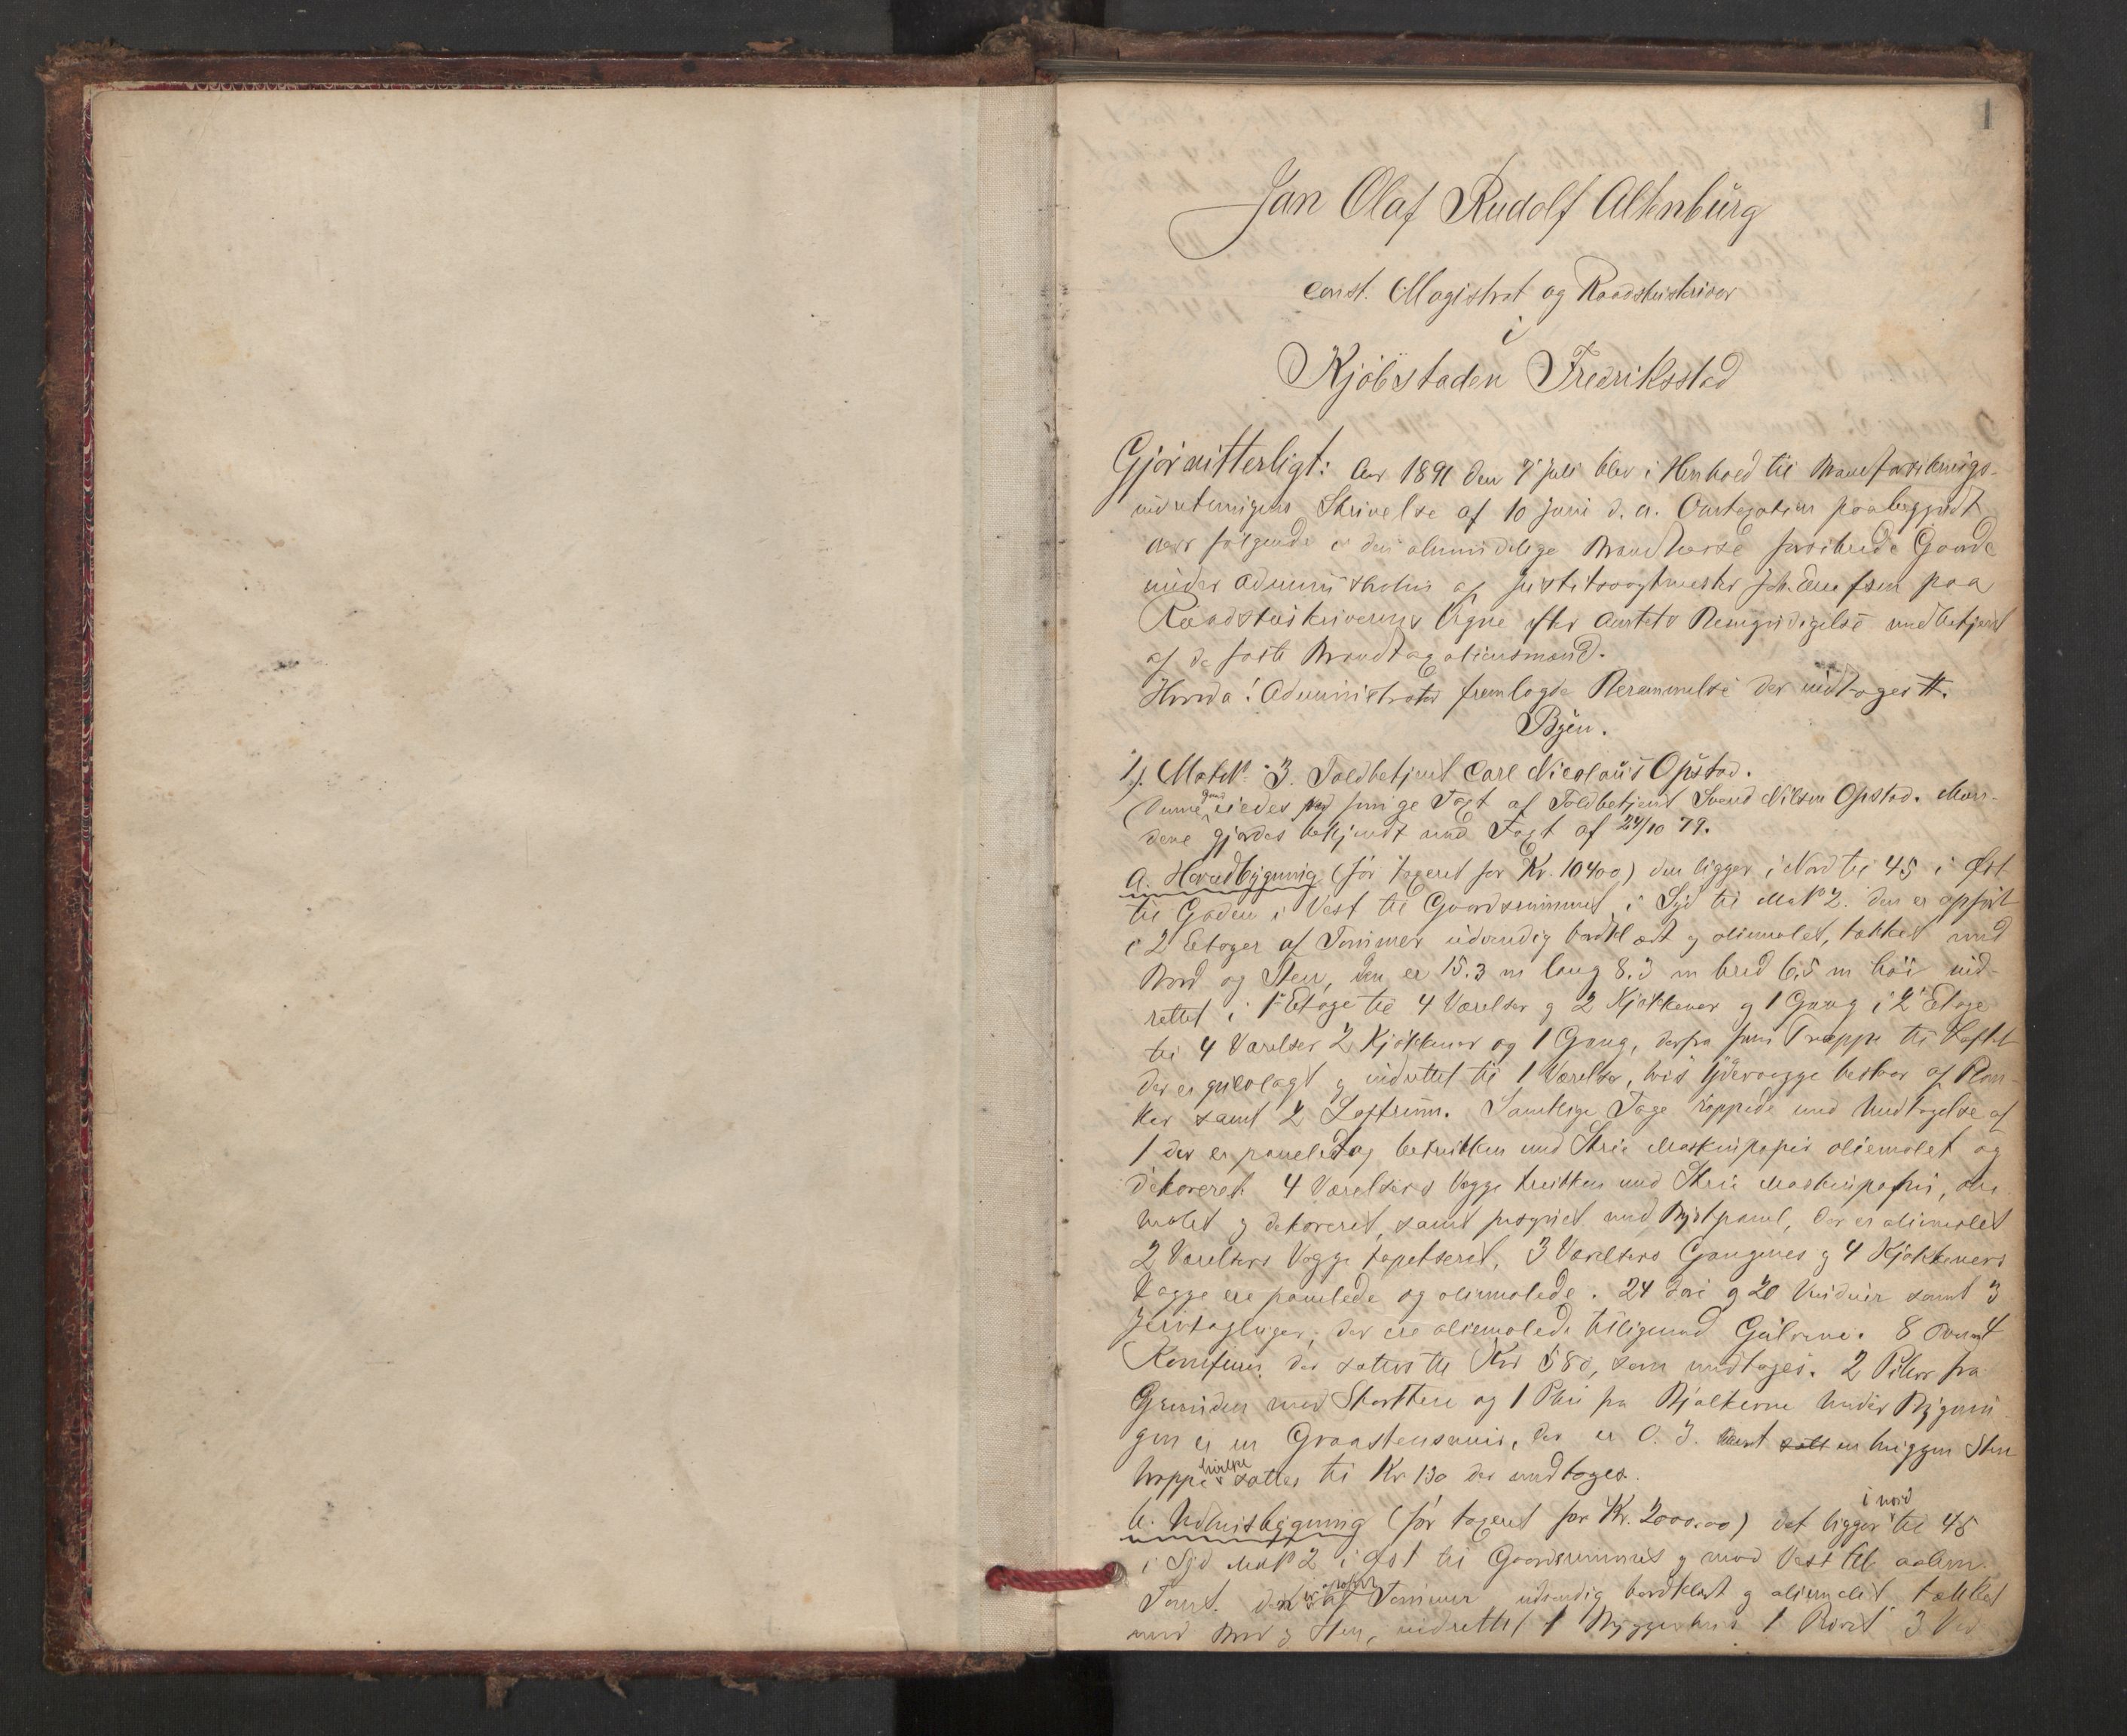 1
Jan Olaf Rudolf Altenburg
const. Magistrat og Raadstuskriver
i
Kjöbstaden Fredriksstad
Gjör vitterligt: Aar 1891 den 7 juli blev i Henhold til Brandforsikrings-
indretningens Skrivelse af 10 juni d. a. Omtaxation paabegyndt
over fölgende i den almindelige Brandkasse forsikrede Gaarde
under Administration af paa
Raadstuskriverens Vegne efter Amtets Bemyndigelse med betjent
af de faste Brandtaxationsmænd.
Hvorda! Administrator fremlagde Berammelse der indtages #.
Byen.
1). MatN. 3. Toldbetjent Carl Nicolaus Opstad.
(Denne gaard eiedes ved forrige Taxt af Toldbetjent Svend Nilsen Opstad. Man-
dene gjordes bekjendt med Taxt af 24/10 79.
A. Hovedbygning (för taxeret for Kr. 10400) den ligger i Nord til 45 i Øst
til Gaden i Vest til Gaardsrummet i Syd til MatN 2. den er opfört
i 2 Etager af Tømmer udvendig bordklædt og oliemalet, tækket med
Bord og Sten, den er 15.3 m lang 8.3 m bred 6,5 m höi ind-
rettet i 1ste Etage til 4 Værelser og 2 Kjökkener og 1 Gang i 2den Etage
til 4 Værelser 2 Kjökkener og 1 Gang, derfra förer Trappe til Loftet
der er gulvlagt og indrettet til 1 Værelse, hvis Ydervægge bestaar af Plan-
ker samt 2 Loftrum. Samtlige Tage rappede med Undtagelse af
1 der er panelet og betrukken med Strie Maskinpapir oliemalet og
dekoreret. 4 Værelsers Vægge trukken med Strie Maskinpapir, olie
malet og dekoreret, samt forsynet med Brystpanel, der er oliemalet
2 Værelsers Vægge tapetseret, 3 Værelsers Gangenes og 4 Kjökkeners
Vægge ere panelede og oliemalede. 24 döre og 20 Vinduer samt 3
der ere oliemalede tilligemed Gulvene. 8 samt 4
Komfurer, der sættes til Kr 580, som undtages. 2 Piber fra
Grunden med Skorsten og 1 Pibe fra Bjælkerne Under Bygnin
gen er en Graastensmur, der er 0.3. samt en huggen Sten
trappe hvilke sættes til Kr 130 der undtages.
b. Udhusbygning (för taxeret for Kr. 2000.00) det ligger i nord til 45
i Syd MatN 2 i Øst til Gaardsrummet og mod Vest til aaben
Tomt. den er opfört af Tømmer udvendig bordklædt og oliemalet tækket
med Bord og Sten, indrettet 1 Bryggerhus 1 Privet 3 Ved